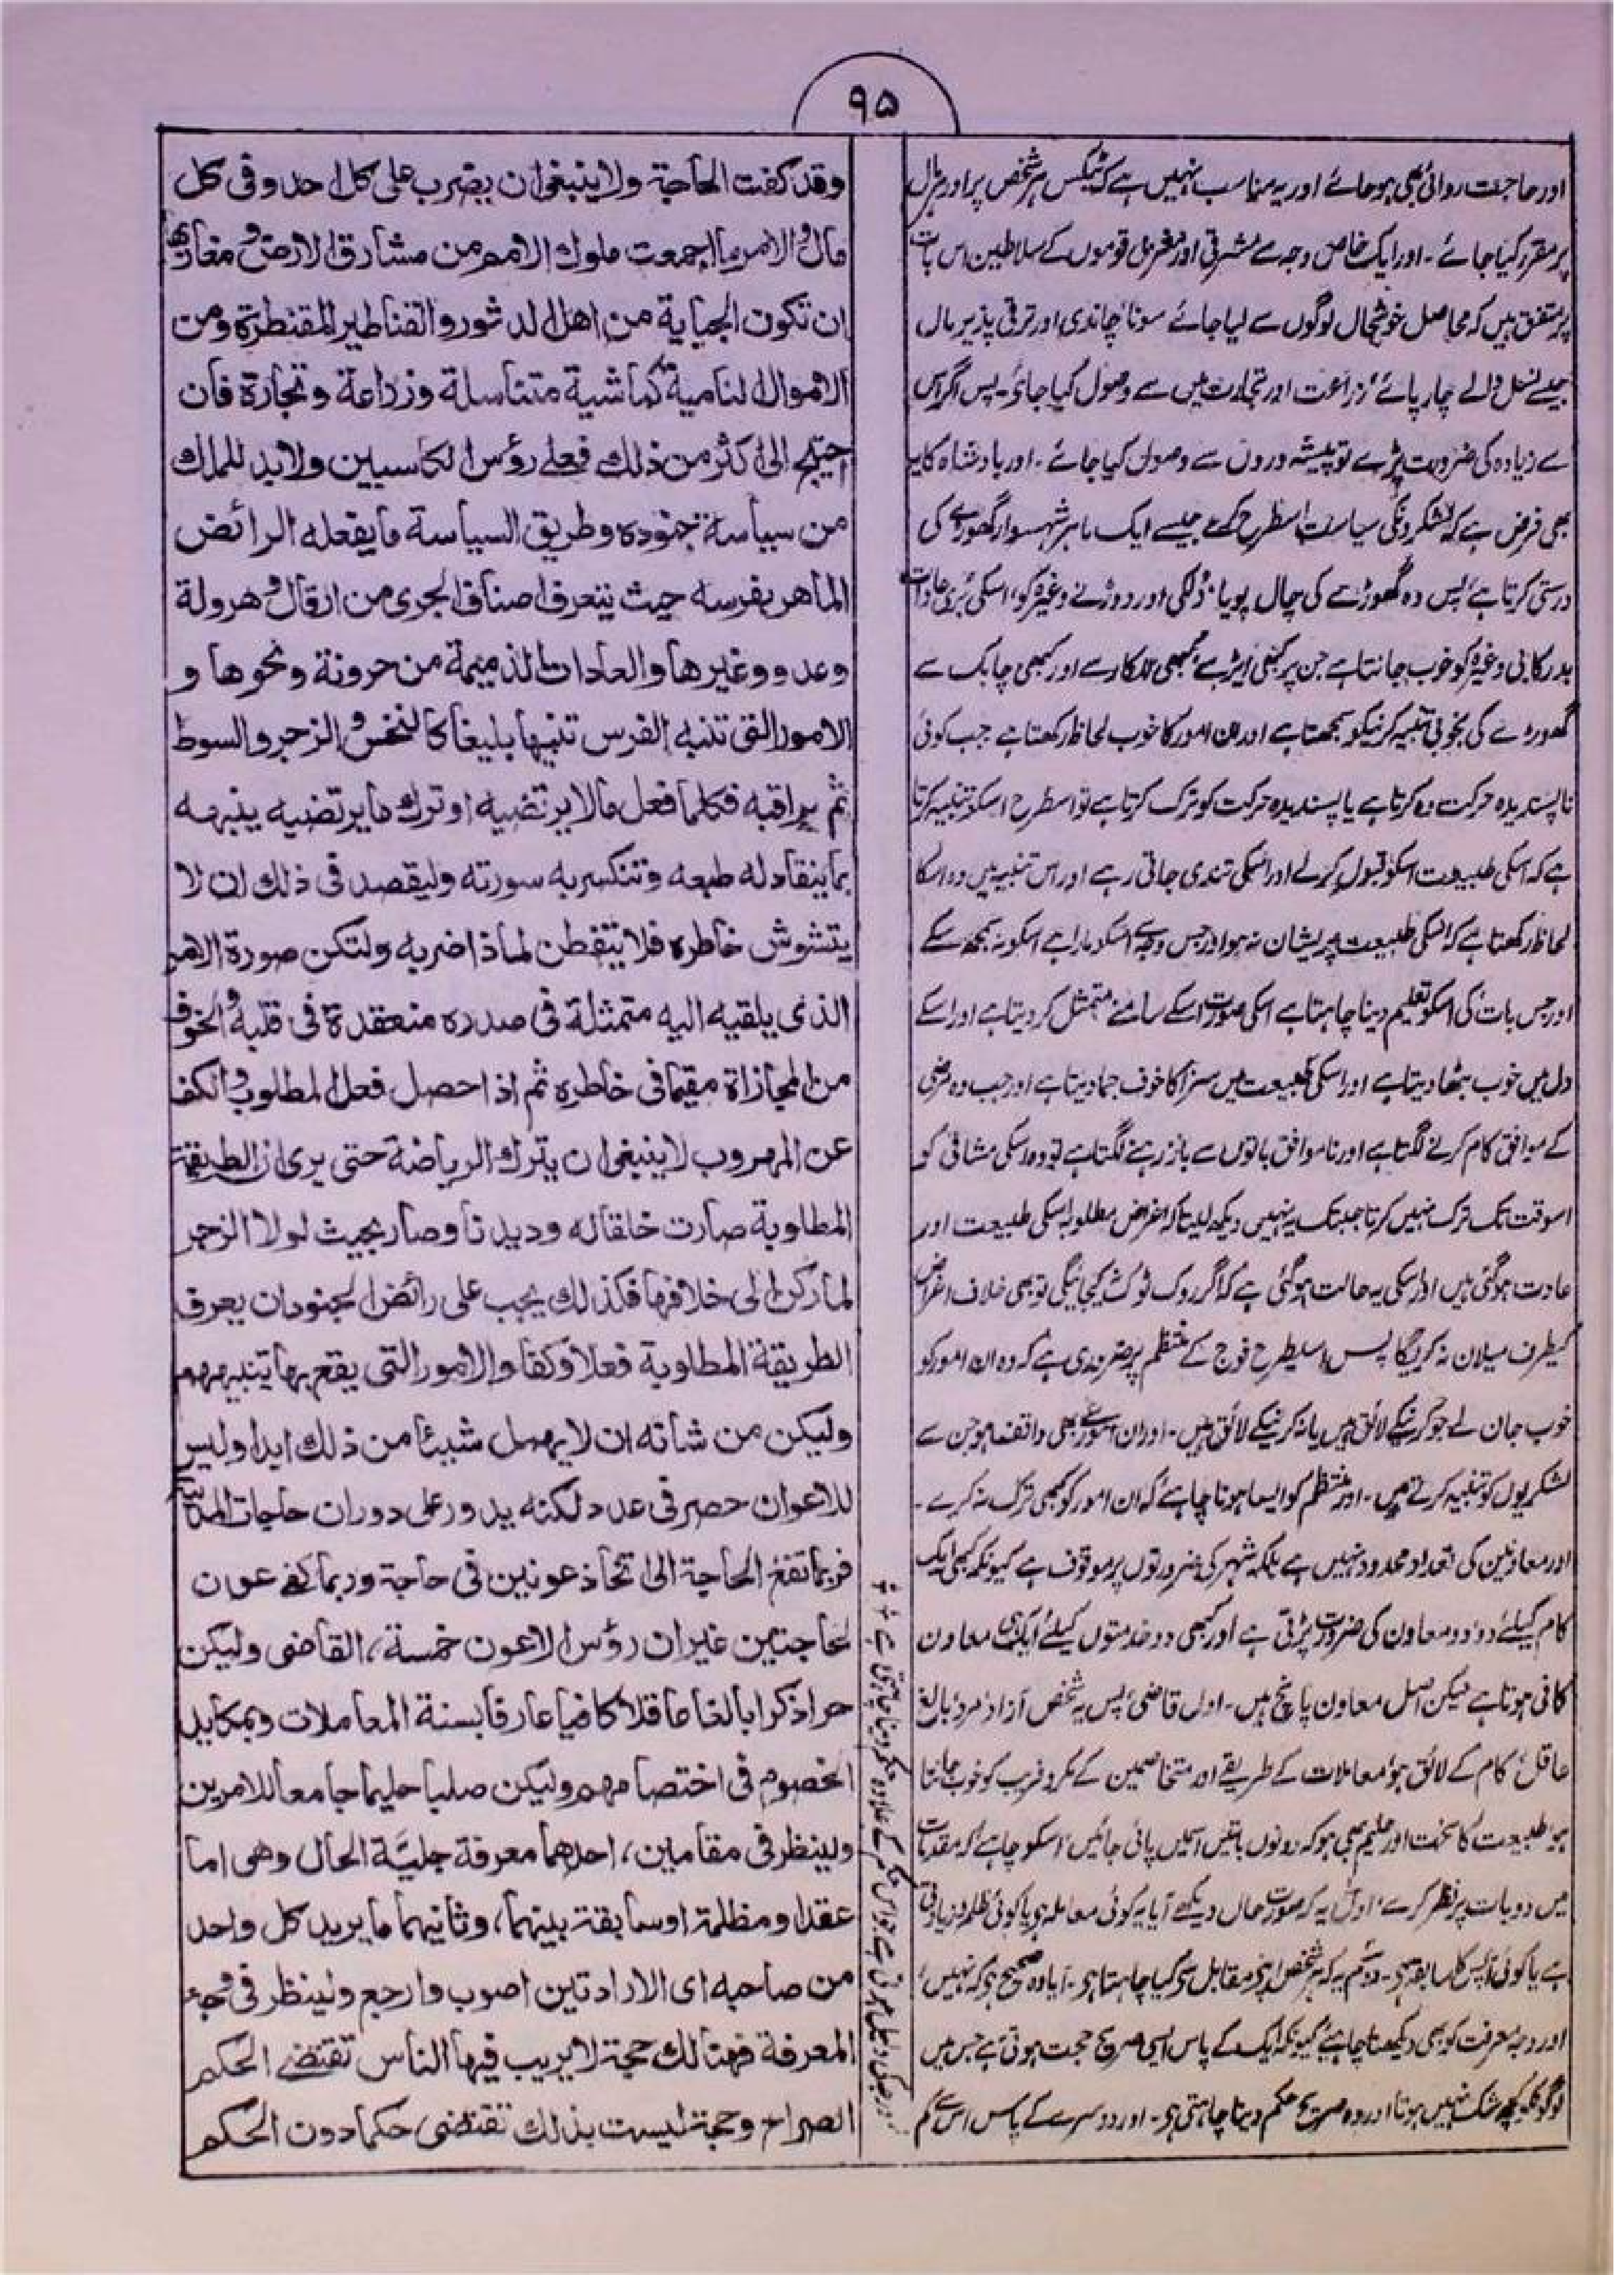 ۹۵
اور حاجت روائی بھی ہو جائے اور یہ مناسب نہیں ہے کہ ٹیکس ہر شخص پر اور ہر مال
پر مقرر کیا جائے ۔ اور ایک خاص وجہ سے مشرقی اور مغربی قوموں کے سلاطین اس بات
پر متفق ہیں کہ محاصل خوشحال لوگوں سے لیا جائے سونا چاندی اور ترقی پذیر مال
جیسے نسل والے چارپائے، زراعت اور تجارت میں سے وصول کیا جائے ۔ پس اگر اس
سے زیادہ کی ضرورت پڑے تو پیشہ وروں سے وصول کیا جائے ۔ اور بادشاہ کا یہ
بھی فرض ہے کہ لشکرونکی سیاست اسطرح کرے جیسے ایک ماہر شہسوار گھوڑے کی
درستی کرتا ہے، پس وہ گھوڑے کی چال پویا، دُلکی اور دوڑنے وغیرہ کو، اسکی بُری عادات
بدرکابی وغیرہ کو خوب جانتا ہے جن پر کبھی ایڑ سے، کبھی للکار سے اور کبھی چابک سے
گھوڑے کی بخوبی تنبیہ کرنیکو سمجھتا ہے اور ان امور کا خوب لحاظ رکھتا ہے جب کوئی
ناپسندیدہ حرکت وہ کرتا ہے یا پسندیدہ حرکت کو ترک کرتا ہے تو اسطرح اسکو تنبیہ کرتا
ہے کہ اسکی طبیعت اسکو قبول کرلے اور اسکی تندی جاتی رہے اور اس تنبیہ میں وہ اسکا
لحاظ رکھتا ہے کہ اسکی طبیعت پریشان نہ ہو اور جس وجہ سے اسکو مارا ہے اسکو نہ سمجھ سکے
اور جس بات کی اسکو تعلیم دینا چاہتا ہے اسکی صورت اسکے سامنے متمثل کر دیتا ہے اور اسکے
دل میں خوب بٹھا دیتا ہے اور اسکی طبیعت میں سزا کا خوف جما دیتا ہے اور جب وہ مرضی
کے موافق کام کرنے لگتا ہے اور ناموافق باتوں سے باز رہنے لگتا ہے تو وہ اسکی مشاقی کو
اسوقت تک ترک نہیں کرتا جبتک یہ نہیں دیکھ لیتا کہ اغراض مطلوبہ اسکی طبیعت اور
عادت ہوگئی ہیں اور اسکی یہ حالت ہوگئی ہے کہ اگر روک ٹوک نہ کیجائیگی تو بھی خلاف اغراض
کیطرف میلان نہ کریگا پس اسیطرح فوج کے منتظم پر ضروری ہے کہ وہ ان امور کو
خوب جان لے جو کرنیکے لائق ہیں یا نہ کرنیکے لائق ہیں ۔ اور ان امور سے بھی واقف ہو جن سے
لشکریوں کو تنبیہ کرتے ہیں ۔ اور منتظم کو ایسا ہونا چاہئے کہ ان امور کو کبھی ترک نہ کرے ۔
اور معاونین کی تعداد محدود نہیں ہے بلکہ شہر کی ضرورتوں پر موقوف ہے کیونکہ کبھی ایک
کام کیلئے دو دو معاون کی ضرورت پڑتی ہے اور کبھی دو خدمتوں کیلئے ایک ہی معاون
کافی ہوتا ہے لیکن اصل معاون پانچ ہیں ۔ اول قاضی، پس یہ شخص آزاد، مرد، بالغ
عاقل، کام کے لائق ہو، معاملات کے طریقے اور متخاصمین کے مکر و فریب کو خوب جانتا
ہو طبیعت کا سخت اور حلیم بھی ہو کہ دونوں باتیں اسمیں پائی جائیں، اسکو چاہئے کہ مقدمات
میں دو بات پر نظر کرے، اول یہ کہ صورت حال دیکھے آیا یہ کوئی معاملہ ہو یا کوئی ظلم و زیادتی
ہے یا کوئی آپس کا سابقہ ہو ۔ دوئم یہ کہ ہر شخص اپنے مقابل سے کیا چاہتا ہو ۔ آیا وہ صحیح ہو کہ نہیں،
اور وجہ معرفت کو بھی دیکھنا چاہیئے کیونکہ ایک کے پاس ایسی صریح حجت ہوتی ہے جس میں
لوگونکو کچھ شک نہیں ہوتا اور وہ صریح حکم دینا چاہتی ہو ۔ اور دوسرے کے پاس اس سے کم
وقد كفت الحاجة ولا ينبغي ان يضرب على كل احد وفى كل
مال والامر ما اجمعت ملوك الامم من مشارق الارض ومغاربها
ان تكون الجباية من اهل الدثور والقناطير المقنطرة ومن
الاموال النامية كماشية متناسلة وزراعة وتجارة فان
احتيج الى اكثر من ذلك فعلى رؤس الكاسبين ولابد للملك
من سياسة جنوده وطريق السياسة ما يفعله الرائض
الماهر بفرسه حيث يتعرف اصناف الجرى من ارقال وهرولة
وعدو وغيرها والعادات الذميمة من حرونة ونحوها و
الامور التى تنبه الفرس تنبيها بليغا كالنخس والزجر والسوط
ثم يراقبه فكلما فعل مالا يرتضيه او ترك ما يرتضيه ينبهه
بما ينقاد له طبعه وتنكسر به سورته وليقصد فى ذلك ان لا
يتشوش خاطره فلا يتفطن لماذا ضربه ولتكن صورة الامر
الذى يلقيه اليه متمثلة فى صدره منعقدة فى قلبه والخوف
من المجازاة مقيما فى خاطره ثم اذا حصل فعل المطلوب والكف
عن المهروب لا ينبغي ان يترك الرياضة حتى يرى ان الطريقة
المطلوبة صارت خلقا له وديدنا وصار بحيث لولا الزجر
لما ركن الى خلافها فكذلك يجب على رائض الجنود ان يعرف
الطريقة المطلوبة فعلا وكفا والامور التى يقع بها تنبيههم
وليكن من شانه ان لا يهمل شيئا من ذلك ابدا وليس
للاعوان حصر فى عدد لكنه يدور على دوران حاجات المدينة
فربما تقع الحاجة الى اتخاذ عونين فى حاجة وربما كفى عون
لحاجتين غير ان رؤس الاعون خمسة، القاضى وليكن
حرا ذكرا بالغا عاقلا كافيا عارفا بسنة المعاملات وبمكايد
الخصوم فى اختصامهم وليكن صلبا حليما جامعا للامرين
ولينظر فى مقامين، احدهما معرفة جلية الحال وهى اما
عقد او مظلمة او سابقة بينهما، وثانيهما ما يريد كل واحد
من صاحبه اى الارادتين اصوب وارجح ولينظر فى وجه
المعرفة فهنالك حجة لا يريب فيها الناس تقتضى الحكم
الصراح وحجة ليست بذلك تقتضى حكما دون الحكم